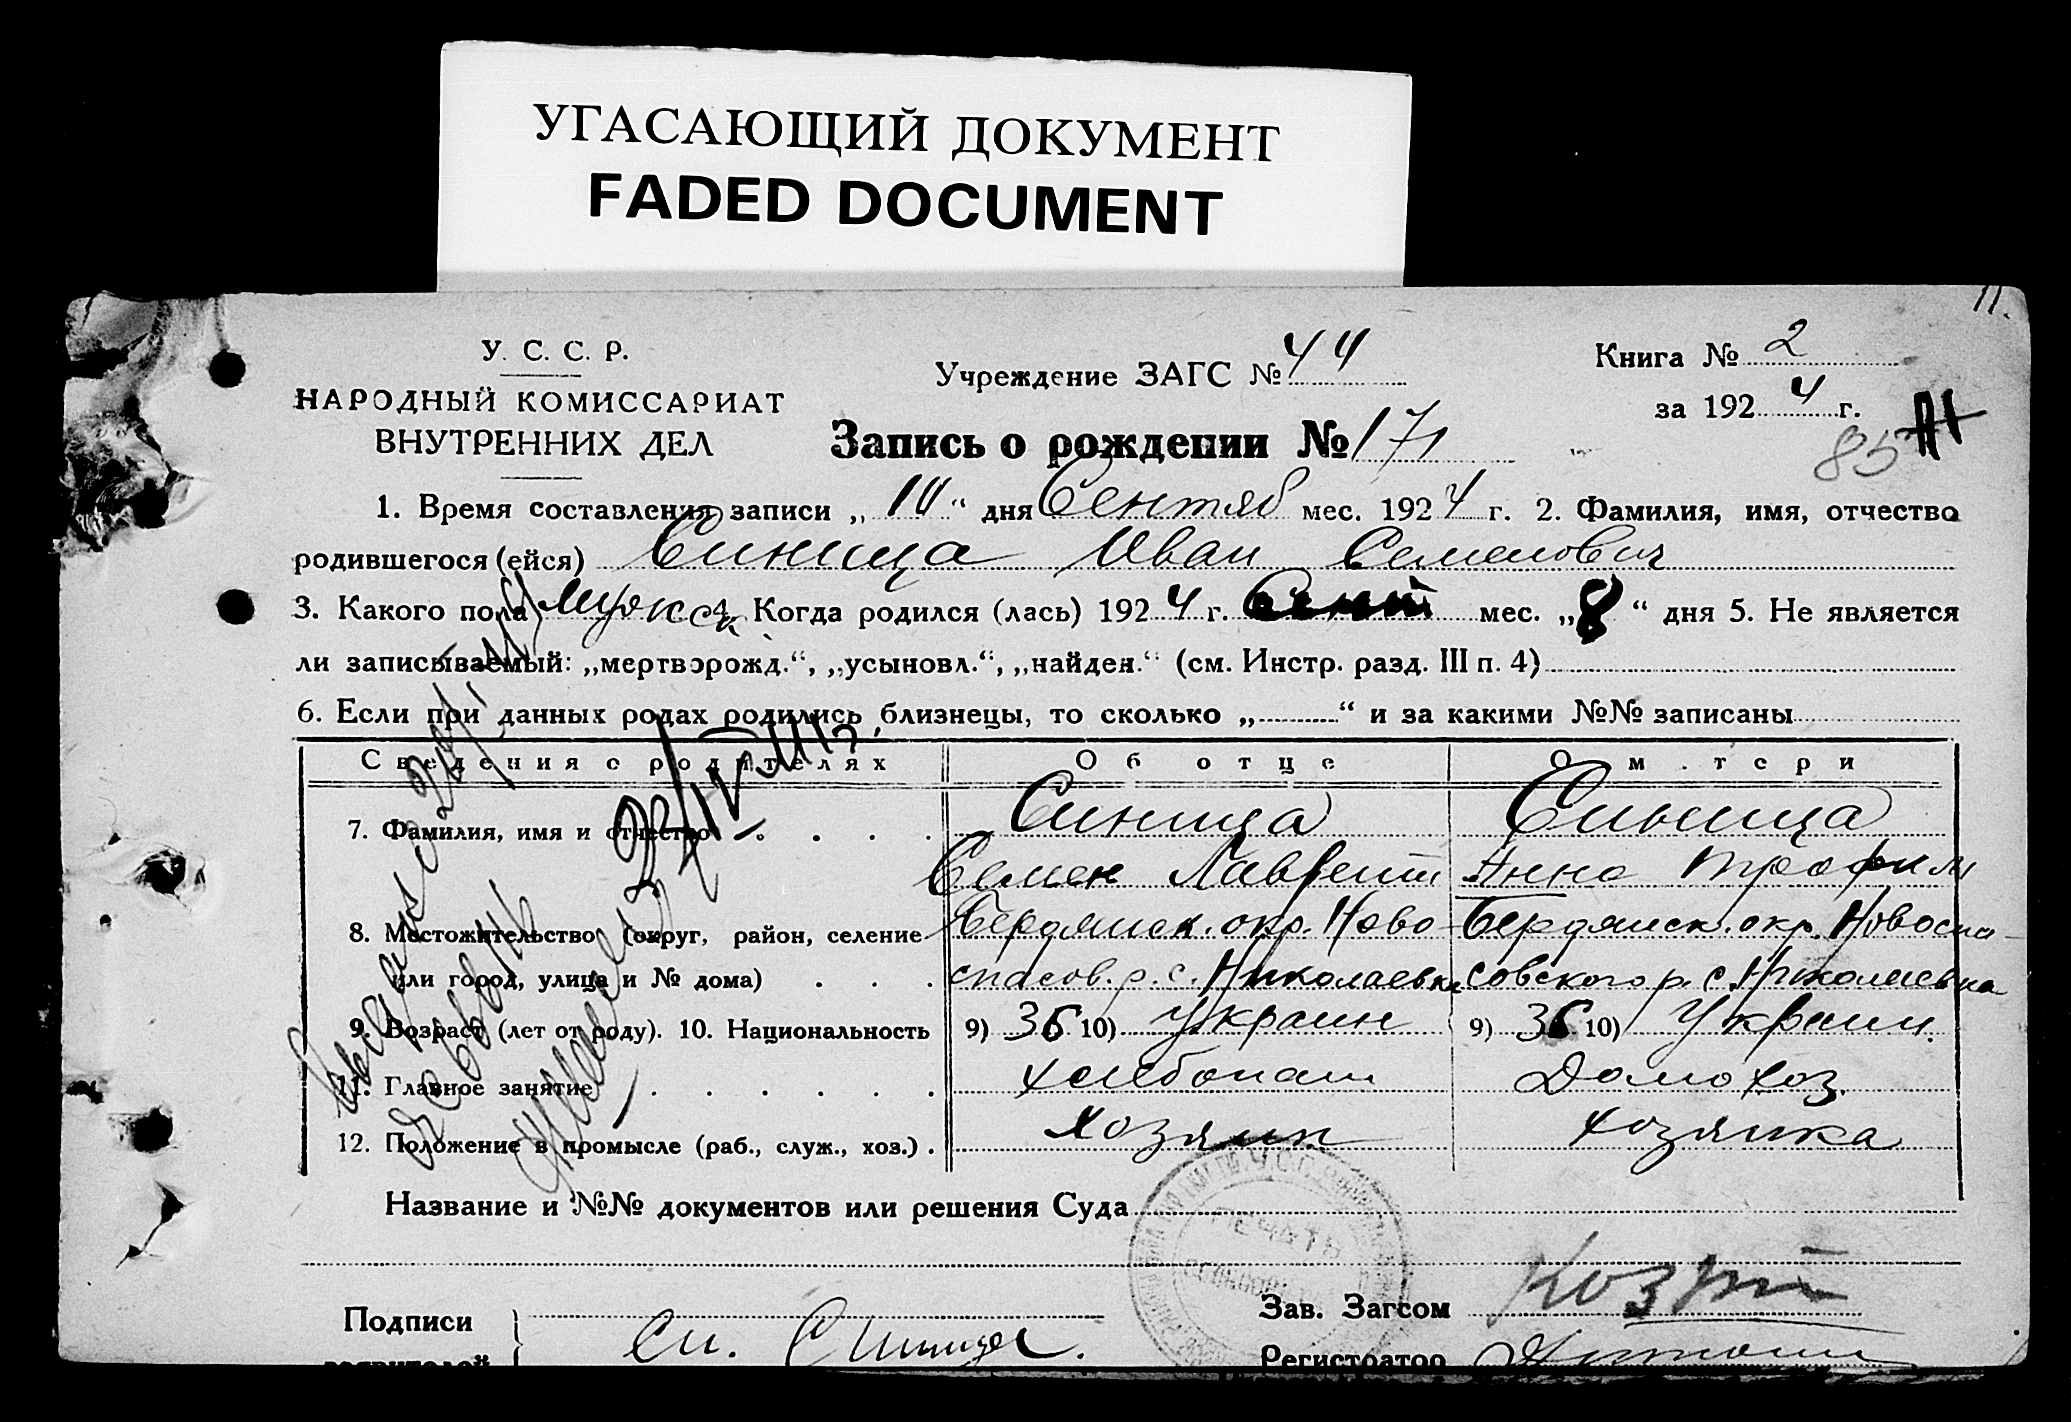 УГАСАЮЩИЙ ДОКУМЕНТ
FADED DOCUMENT
11.
У. С. С. Р.
НАРОДНЫЙ КОМИССАРИАТ
ВНУТРЕННИХ ДЕЛ
Учреждение ЗАГС № 44
Книга № 2
за 1924 г.
85
Запись о рождении № 171
1. Время составления записи „10“ дня Сентяб мес. 1924 г. 2. Фамилия, имя, отчество
родившегося (ейся) Синица Иван Семенович
3. Какого пола Мужск 4. Когда родился (лась) 1924 г. Сент мес. „8“ дня 5. Не является
ли записываемый: „мертворожд.“, „усыновл.“, „найден.“ (см. Инстр. разд. III п. 4)
6. Если при данных родах родились близнецы, то сколько „ “ и за какими №№ записаны
Сведения о родителях Об отце О м.тери
7. Фамилия, имя и отчество Синица Синица
Семен Лаврент Анна Трофим
8. Местожительство (округ, район, селение Бердянск. окр. Ново- Бердянск. окр. Новоспа-
или город, улица и № дома) спасов. р. с. Николаевка совского р. с. Николаевка
9. Возраст (лет от роду). 10. Национальность 9) 36 10) Украин 9) 36 10) Украин.
11. Главное занятие хлебопаш Домохоз.
12. Положение в промысле (раб., служ., хоз.) Хозяин хозяйка
Название и №№ документов или решения Суда
ПЕЧАТЬ
Подписи
заявителей
Синица
Зав. Загсом
Регистратор